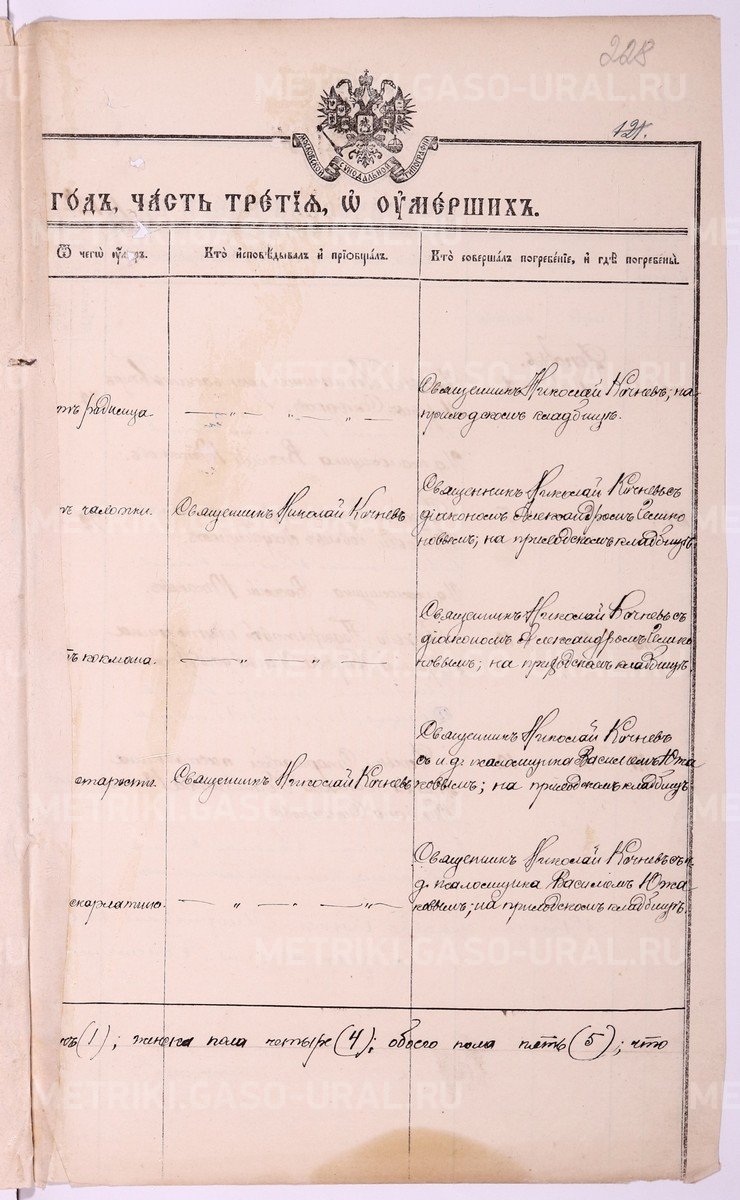 228
121.
МОСКОВСКОЙ СѴНОДАЛЬНОЙ ТИПОГРАФІИ
ГОДЪ, ЧАСТЬ ТРЕТІЯ, Ѡ ОУМЕРШИХЪ.
Ѿ чегѡ оумеръ.
Кто исповѣдывалъ и пріобщалъ.
Кто совершалъ погребеніе, и гдѣ погребены.
Священникъ Николай Кочневъ; на
приходскомъ кладбищѣ.
тъ родимца.
ъ чахотки.
Священникъ Николай Кочневъ
Священникъ Николай Кочневъ съ
діакономъ Александромъ
новымъ; на приходскомъ кладбищѣ.
Священникъ Николай Кочневъ съ
діакономъ Александромъ
новымъ; на приходскомъ кладбищѣ.
тъ коклюша.
Священникъ Николай Кочневъ
съ и.д. псаломщика Василіемъ Южа
ковымъ; на приходскомъ кладбищѣ
старости.
Священникъ Николай Кочневъ
Священникъ Николай Кочневъ съ и.
д. псаломщика Василіемъ Южа
ковымъ; на приходскомъ кладбищѣ.
скарлатины.
(1); женска пола четыре (4); обоего пола пять (5); что
METRIKI.GASO-URAL.RU